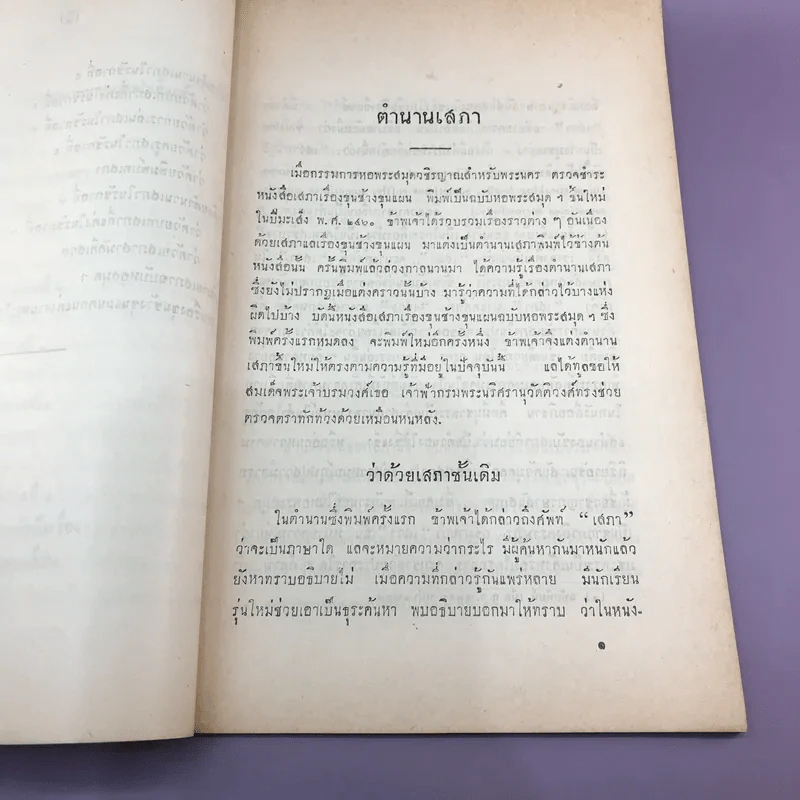 ตำนานเสภา
เมื่อกรรมการหอพระสมุดวชิรญาณสำหรับพระนคร ตรวจชำระ
หนังสือเสภาเรื่องขุนช้างขุนแผน พิมพ์เป็นฉบับหอพระสมุด ฯ ขึ้นใหม่
ในปีมะเส็ง พ.ศ. ๒๔๖๐ ข้าพเจ้าได้รวบรวมเรื่องราวต่าง ๆ อันเนื่อง
ด้วยเสภาแลเรื่องขุนช้างขุนแผน มาแต่งเป็นตำนานเสภาพิมพ์ไว้ข้างต้น
หนังสือนั้น ครั้นพิมพ์แล้วล่วงกาลนานมา ได้ความรู้เรื่องตำนานเสภา
ซึ่งยังไม่ปรากฏเมื่อแต่งคราวนั้นบ้าง มารู้ว่าความที่ได้กล่าวไว้บางแห่ง
ผิดไปบ้าง บัดนี้หนังสือเสภาเรื่องขุนช้างขุนแผนฉบับหอพระสมุด ฯ ซึ่ง
พิมพ์ครั้งแรกหมดลง จะพิมพ์ใหม่อีกครั้งหนึ่ง ข้าพเจ้าจึงแต่งตำนาน
เสภาขึ้นใหม่ให้ตรงตามความรู้ที่มีอยู่ในปัจจุบันนี้ แลได้ทูลขอให้
สมเด็จพระเจ้าบรมวงศ์เธอ เจ้าฟ้ากรมพระนริศรานุวัดติวงศ์ทรงช่วย
ตรวจตราทักท้วงด้วยเหมือนหนหลัง.
ว่าด้วยเสภาชั้นเดิม
ในตำนานซึ่งพิมพ์ครั้งแรก ข้าพเจ้าได้กล่าวถึงศัพท์ “เสภา”
ว่าจะเป็นภาษาใด แลจะหมายความว่ากระไร มีผู้ค้นหากันมาหนักแล้ว
ยังหาทราบอธิบายไม่ เมื่อความที่กล่าวรู้กันแพร่หลาย มีนักเรียน
รุ่นใหม่ช่วยเอาเป็นธุระค้นหา พบอธิบายบอกมาให้ทราบ ว่าในหนัง-
๑